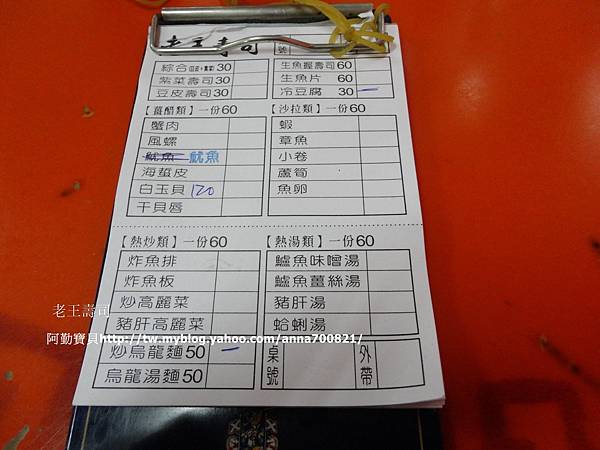 老王壽司
號
綜合 30
生魚握壽司 60
紫菜壽司 30
生魚片 60
豆皮壽司 30
冷豆腐 30 一
【薑醋類】一份60
【沙拉類】一份60
蟹肉
蝦
風螺
章魚
魷魚 魷魚
小卷
海蜇皮
蘆筍
白玉貝 120
魚卵
干貝唇
【熱炒類】一份60
【熱湯類】一份60
炸魚排
鱸魚味噌湯
炸魚板
鱸魚薑絲湯
炒高麗菜
豬肝湯
豬肝高麗菜
蛤蜊湯
炒烏龍麵 50 一
桌號
外帶
烏龍湯麵 50
老王壽司
阿勤寶貝http://tw.myblog.yahoo.com/anna700821/